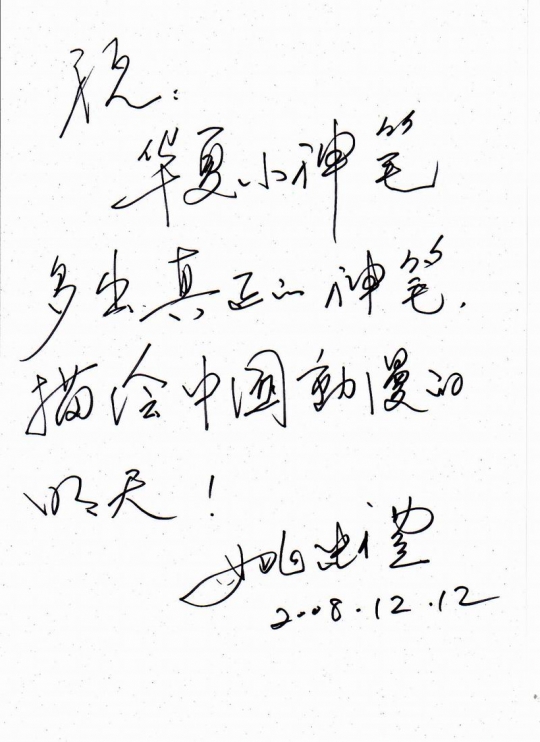 祝:
华夏小神笔
多出真正的神笔.
描绘中国動漫的
明天!
姚忠禮
2008.12.12